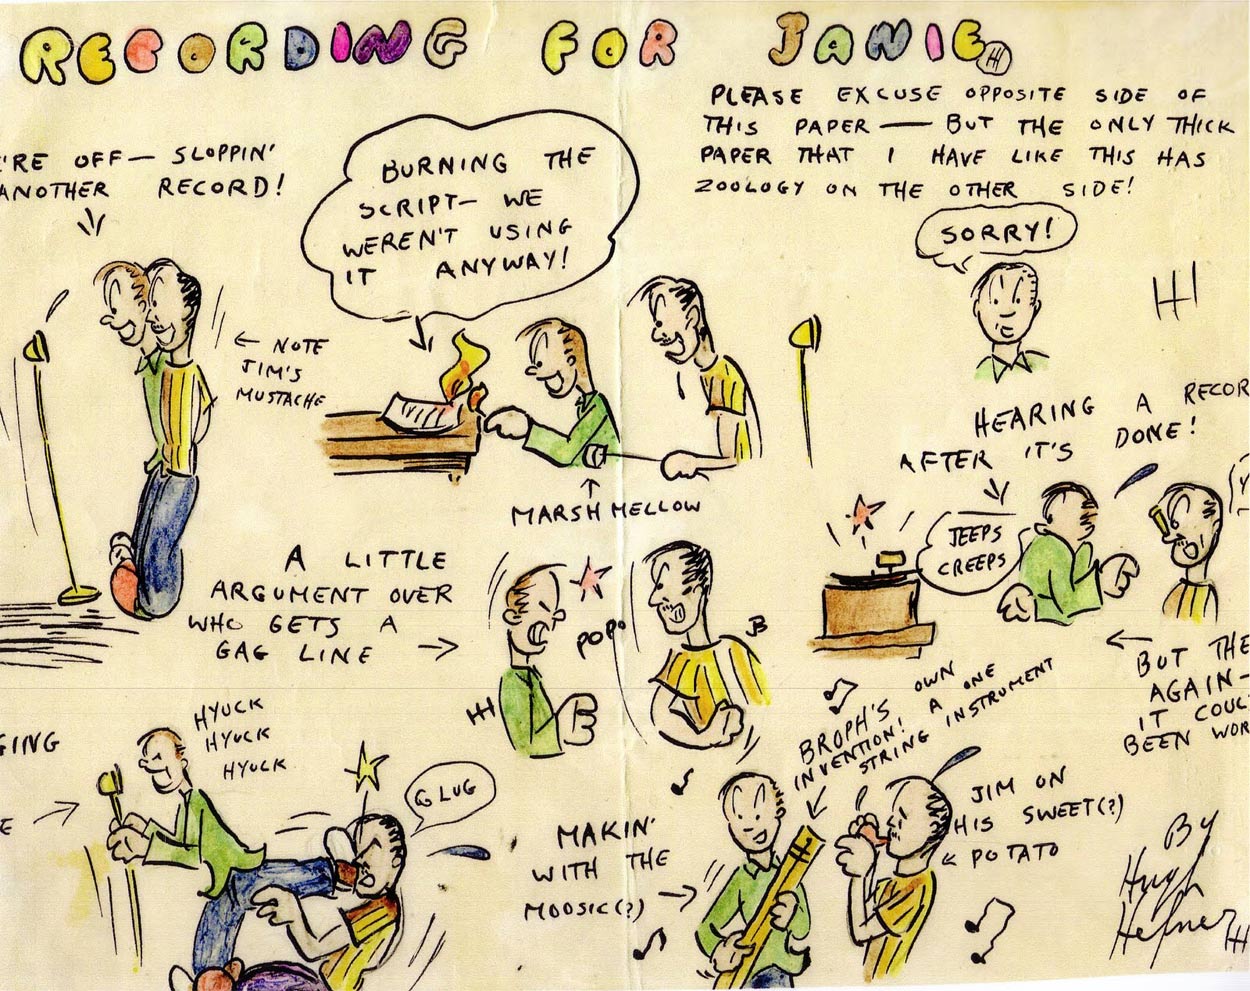 RECORDING FOR JANIE
HH
PLEASE EXCUSE OPPOSITE SIDE OF
THIS PAPER — BUT THE ONLY THICK
PAPER THAT I HAVE LIKE THIS HAS
ZOOLOGY ON THE OTHER SIDE!
SORRY!
HH
'RE OFF — SLOPPIN'
ANOTHER RECORD!
← NOTE
JIM'S
MUSTACHE
BURNING THE
SCRIPT — WE
WEREN'T USING
IT ANYWAY!
MARSHMELLOW
HEARING A RECOR
AFTER IT'S DONE!
JEEPS
CREEPS
Y
BUT THE
AGAIN —
IT COUL
BEEN WOR
A LITTLE
ARGUMENT OVER
WHO GETS A
GAG LINE
POP!
JB
HH
GING
E
HYUCK
HYUCK
HYUCK
GLUG
MAKIN'
WITH THE
MOOSIC(?)
BROPH'S OWN
INVENTION! A ONE
STRING INSTRUMENT
JIM ON
HIS SWEET(?)
POTATO
BY
Hugh
Hefner
HH